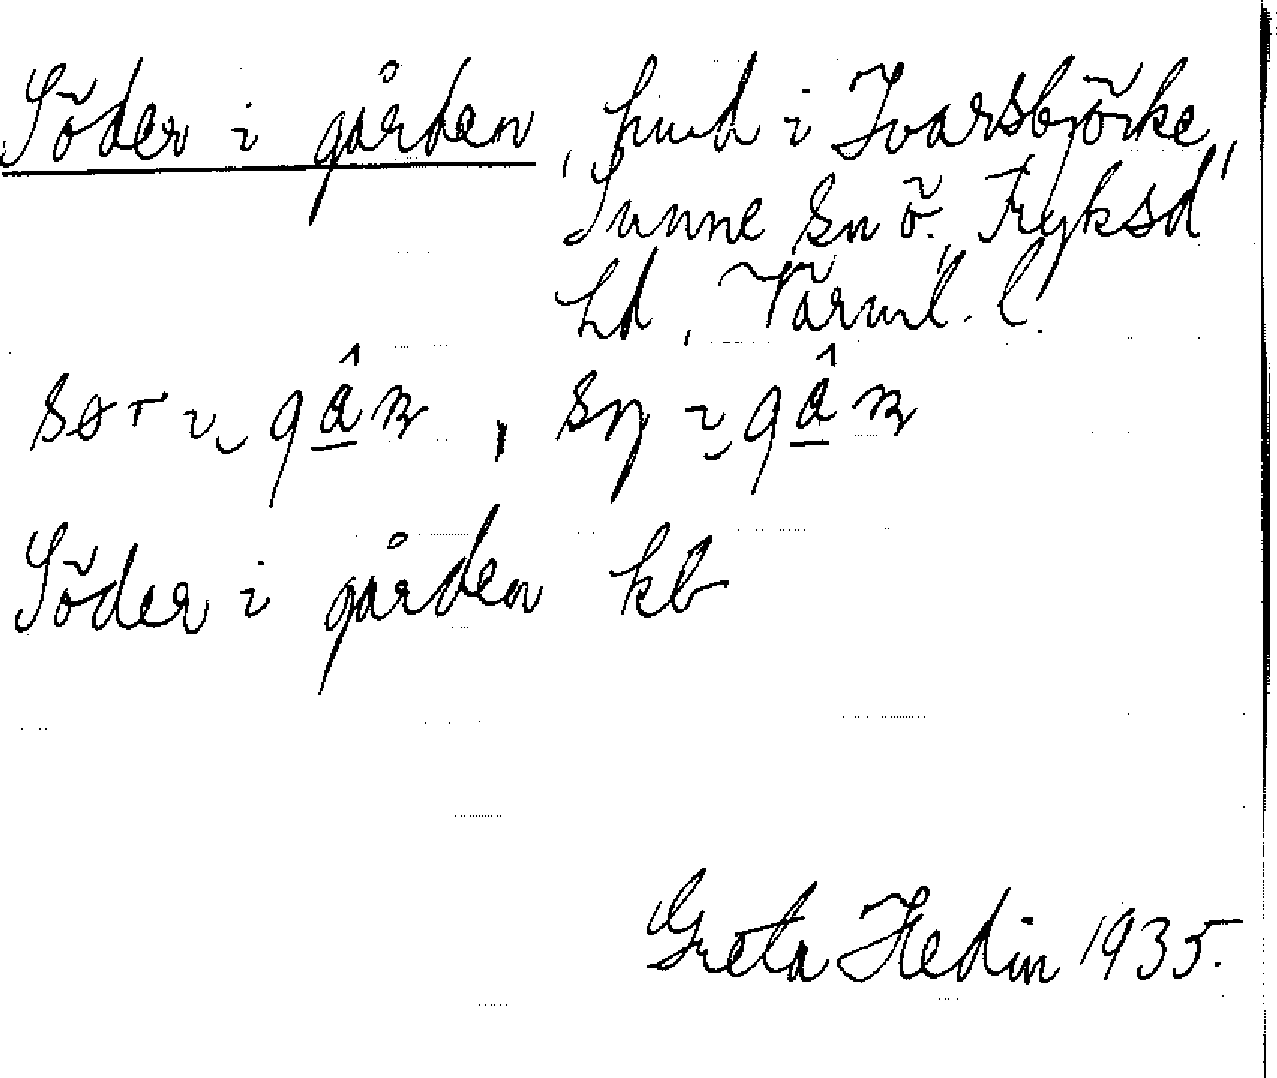 Söder i gården, hmd i Ivarsbjörke,
Sunne sn Ö. Fryksd.
hd, Värml. l.
Söder i gården kb
Greta Hedin 1935.